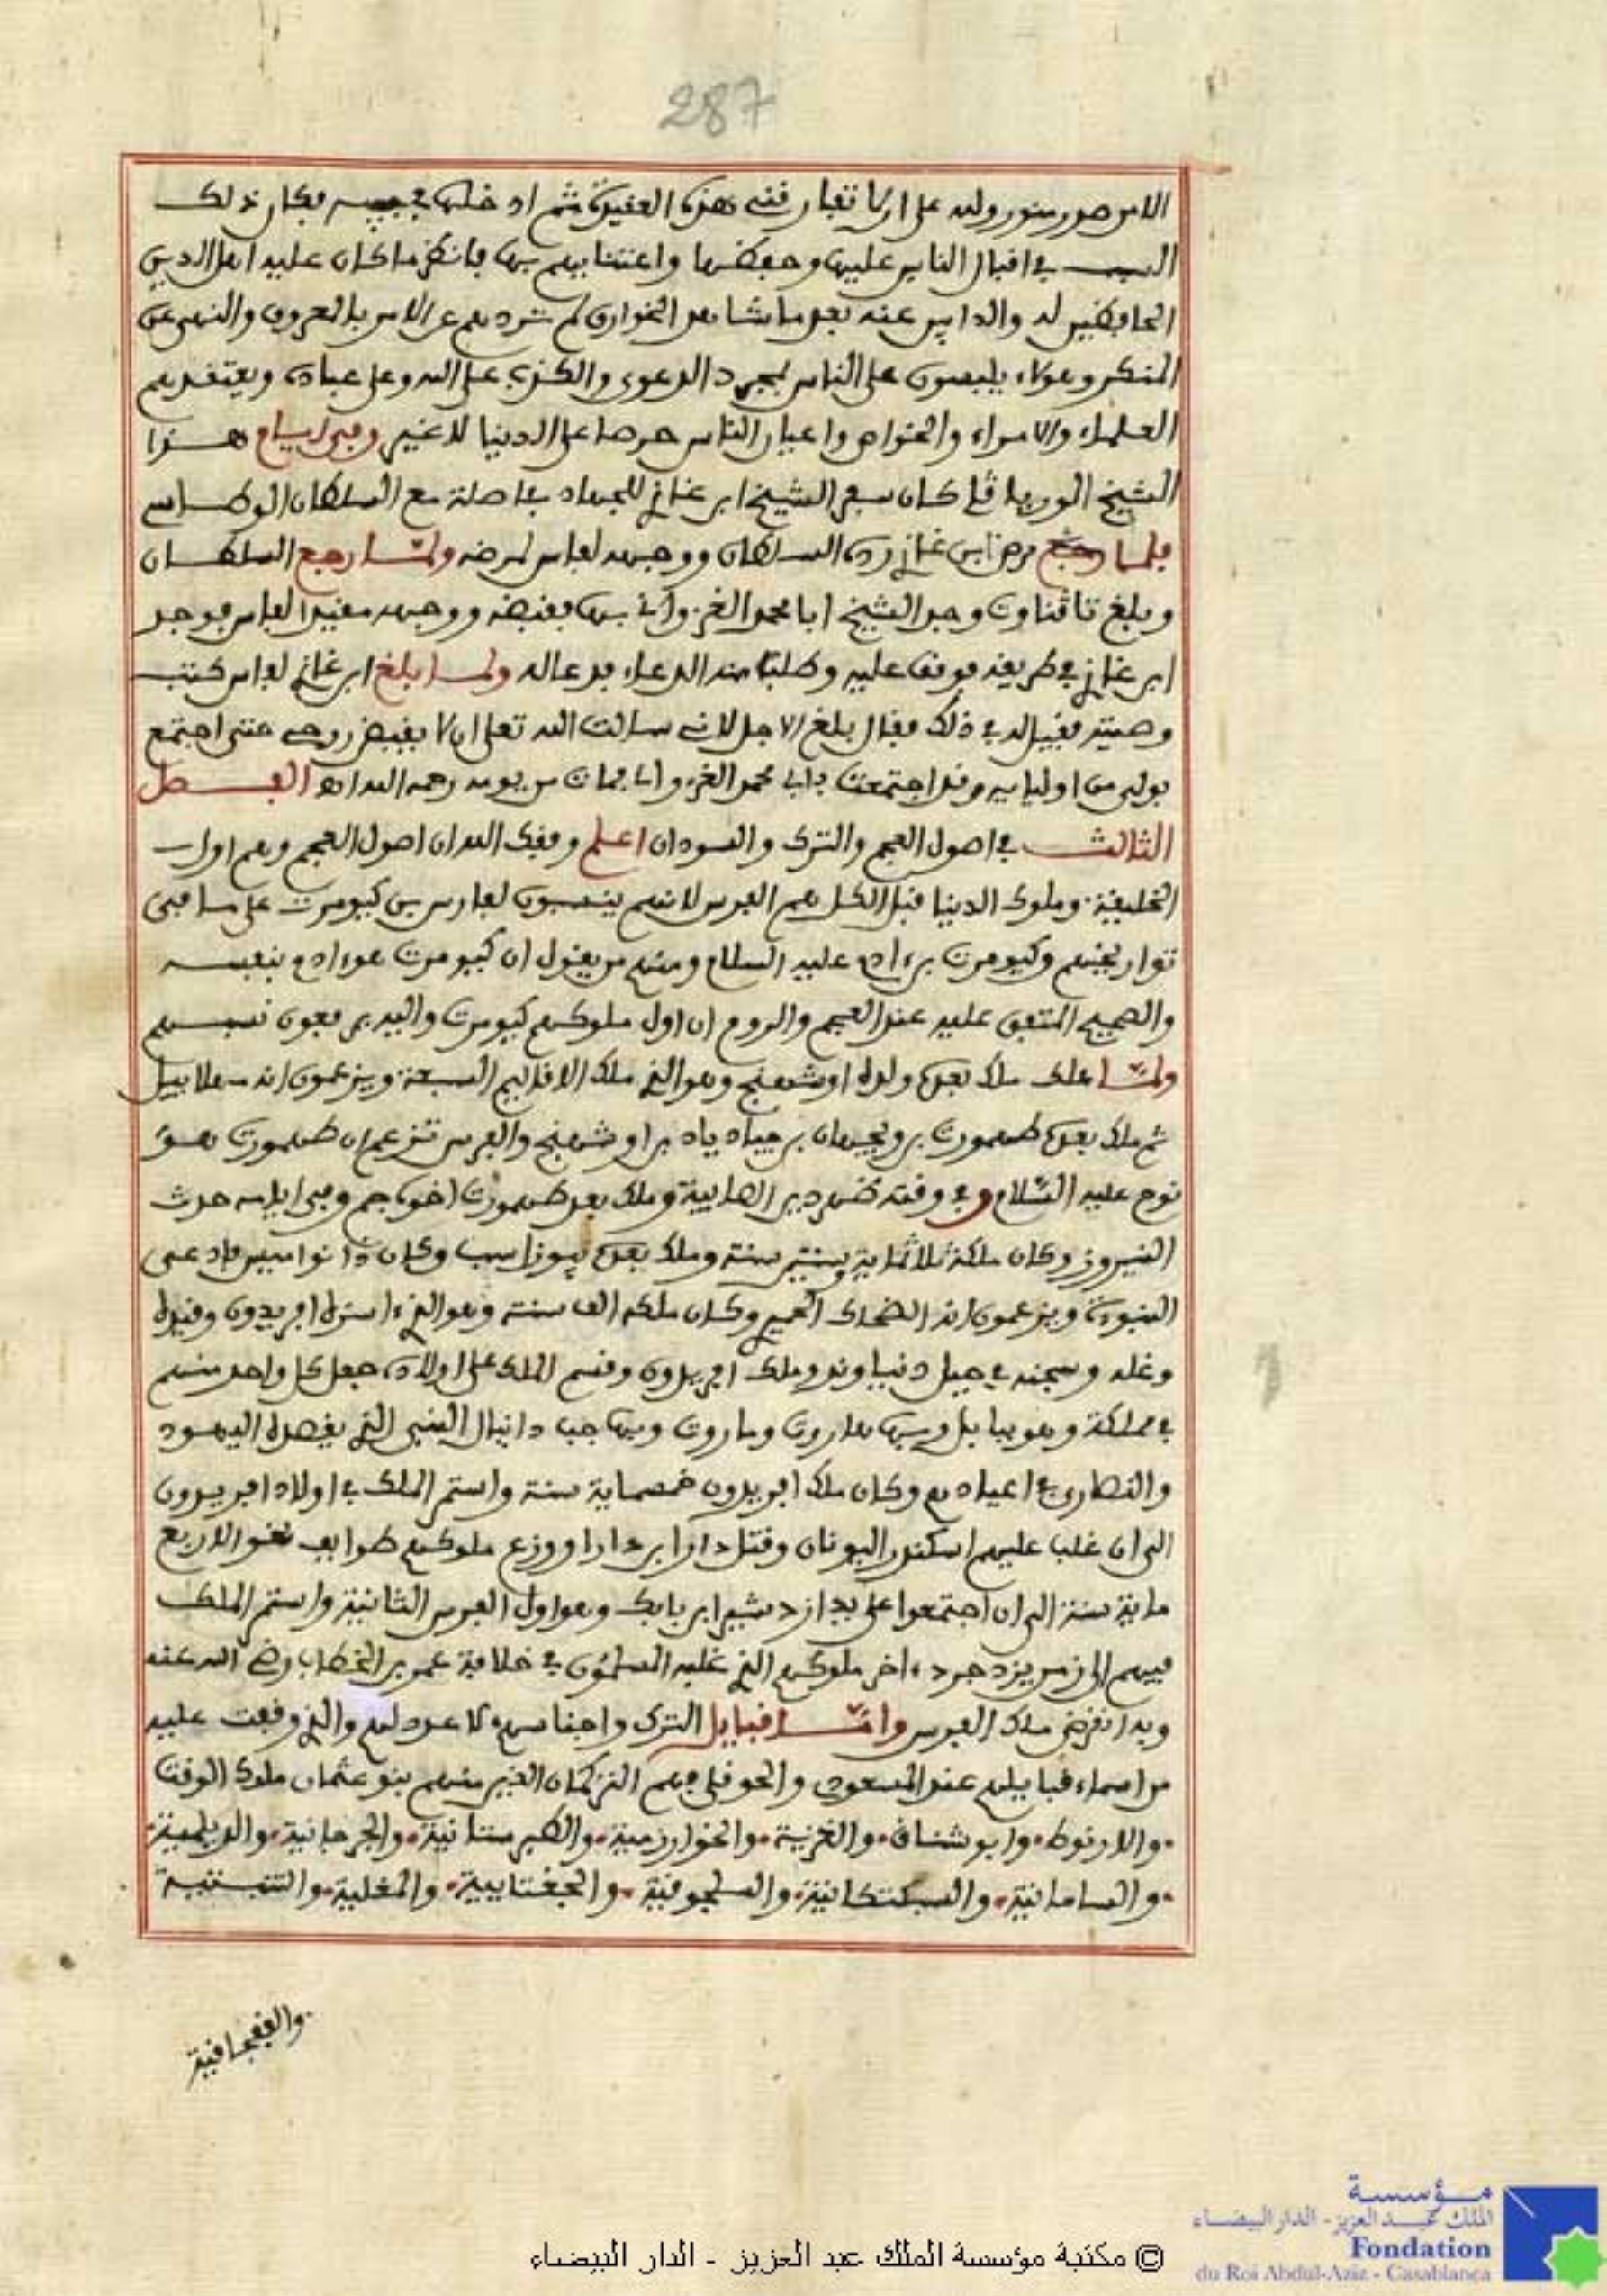 287
الامر صدر منور ولده على ان لا تفارقني هذه العقيدة ثم ادخلها في جيبه فكان ذلك
السبب في اقبال الناس عليها وحفظها واعتنايهم بها فانظر ما كان عليه اهل الدين
الحافظين له والدابين عنه بعد ما شاهد الخوارق لم تردهم عن الامر بالمعروف والنهي عن
المنكر وهولاء يلبسون على الناس بمجرد الدعوى والكذب على الله وعلى عباده ويعتقدهم
العلماء والامراء والخواص واعيان الناس حرصا على الدنيا لا غير وفي ايام هذا
الشيخ الورياڭلي كان سفر الشيخ ابن غازي للجهاد باصلة مع السلطان الوطاسي
فلما مرض ابن غازي رده السلطان ووجهه لفاس لمرضه ولما رجع السلطان
وبلغ تاڭناوت وجد الشيخ ابا محمد الغزواني بها فقبضه ووجهه مقيدا لفاس فوجد
ابن غازي في طريقه فوقف عليه وطلب منه الدعاء فدعا له ولما بلغ ابن غازي لفاس كتب
وصيته فقيل له في ذلك فقال بلغ الاجل لاني سالت الله تعلى ان لا يقبض روحي حتى اجتمع
بولي من اوليايه وقد اجتمعت بابي محمد الغزواني فمات من يومه رحمه الله اه الفصل
الثالث في اصول العجم والترك والسودان اعلم وفقك الله ان اصول العجم وهم اول
الخليفة وملوك الدنيا قبل الكل هم الفرس لانهم ينسبون لفارس بن كيومرت على ما في
تواريخهم وكيومرت بن ءادم عليه السلام ومنهم من يقول ان كيومرت هو ءادم بنفسه
والصحيح المتفق عليه عند العجم والروم ان اول ملوكهم كيومرت واليه يرفعون نسبهم
ولما هلك ملك بعده ولده اوشهنج وهو الذي ملك الاقاليم السبعة ويزعمون انه مهلاييل
ثم ملك بعده طهمورت بن ويجهان بن حياد ياد بن اوشهنج والفرس تزعم ان طهمورت هو
نوح عليه السلام وفي وقته ظهر دين الصابية وملك بعد طهمورت اخوه جم وفي ايامه حدث
النيروز وكان ملكه ثلاثماية وستين سنة وملك بعده بيوراسب وكان ذا نواميس فادعى
النبوة ويزعمون انه الضحاك الحميري وكان ملكه الف سنة وهو الذي اسره افريدون وقيده
وغله وسجنه في جبل دنباوند وملك افريدون وقسم الملك على اولاده جعل كل واحد منهم
في مملكة وهو ببابل وبها هاروت وماروت وبها جب دانيال النبي الذي يقصده اليهود
والنصارى في اعيادهم وكان ملك افريدون خمسماية سنة واستمر الملك في اولاد افريدون
الى ان غلب عليهم اسكندر اليونان وقتل دارا بن دارا ووزع ملوكهم طوايف نحو الاربع
ماية سنة الى ان اجتمعوا على يد ازدشير ابن بابك وهو اول الفرس الثانية واستمر الملك
فيهم الى زمن يزدجرد ءاخر ملوكهم الذي غلبه المسلمون في خلافة عمر بن الخطاب رضي الله عنه
وبه انقرض ملك الفرس واما قبايل الترك واجناسهم لا عدد لهم والذي وقعت عليه
من اسماء قبايلهم عند المسعودي والحوفلي فهم التركمان الذين منهم بنو عثمان ملوك الوقت
والارنوط وابوشناق والغزية والخوارزمية والطبرستانية والجرجانية والديلمية
والسامانية والسبكتكانية والسلجوقية والجغتايية والمغلية والتتبتية
والقفجاقية
مؤسسة
الملك عبد العزيز - الدار البيضاء
Fondation
du Roi Abdul-Aziz - Casablanca
© مكتبة مؤسسة الملك عبد العزيز - الدار البيضاء